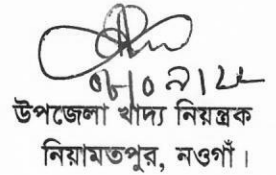 উপজেলা খাদ্য নিয়ন্ত্রক
নিয়ামতপুর, নওগাঁ।